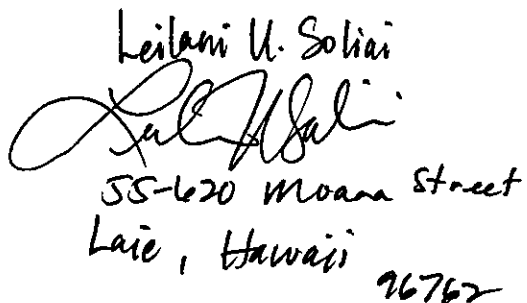 Leilani U. Soliai
55-620 Moana Street
Laie, Hawaii
96762